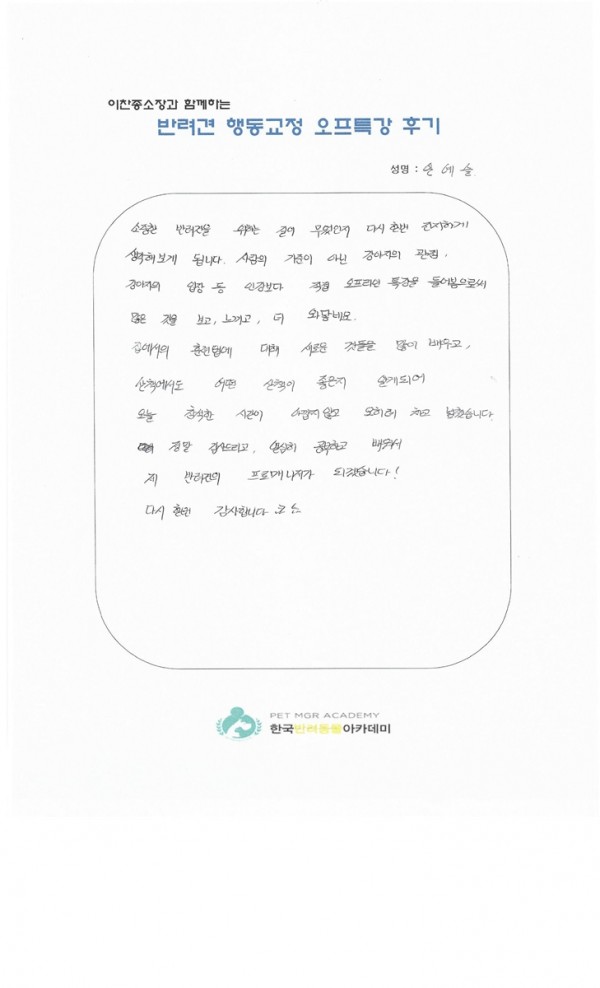 이찬종소장과 함께하는
반려견 행동교정 오프특강 후기
성명 : 손예슬
소중한 반려견을 위하는 길이 무엇인지 다시 한번 진지하게
생각해보게 됩니다. 사람의 기준이 아닌 강아지의 관점,
강아지의 입장 등 인강보다 직접 오프라인 특강을 들어봄으로써
많은 것을 보고, 느끼고, 더 와닿네요.
집에서의 훈련법에 대해 새로운 것들을 많이 배우고,
산책에서도 어떤 산책이 좋은지 알게되어
오늘 참석한 시간이 아깝지 않고 오히려 차고 넘쳤습니다.
정말 감사드리고, 열심히 공부하고 배워서
제 반려견의 프로매니저가 되겠습니다!
다시 한번 감사합니다
PET MGR ACADEMY
한국반려동물아카데미